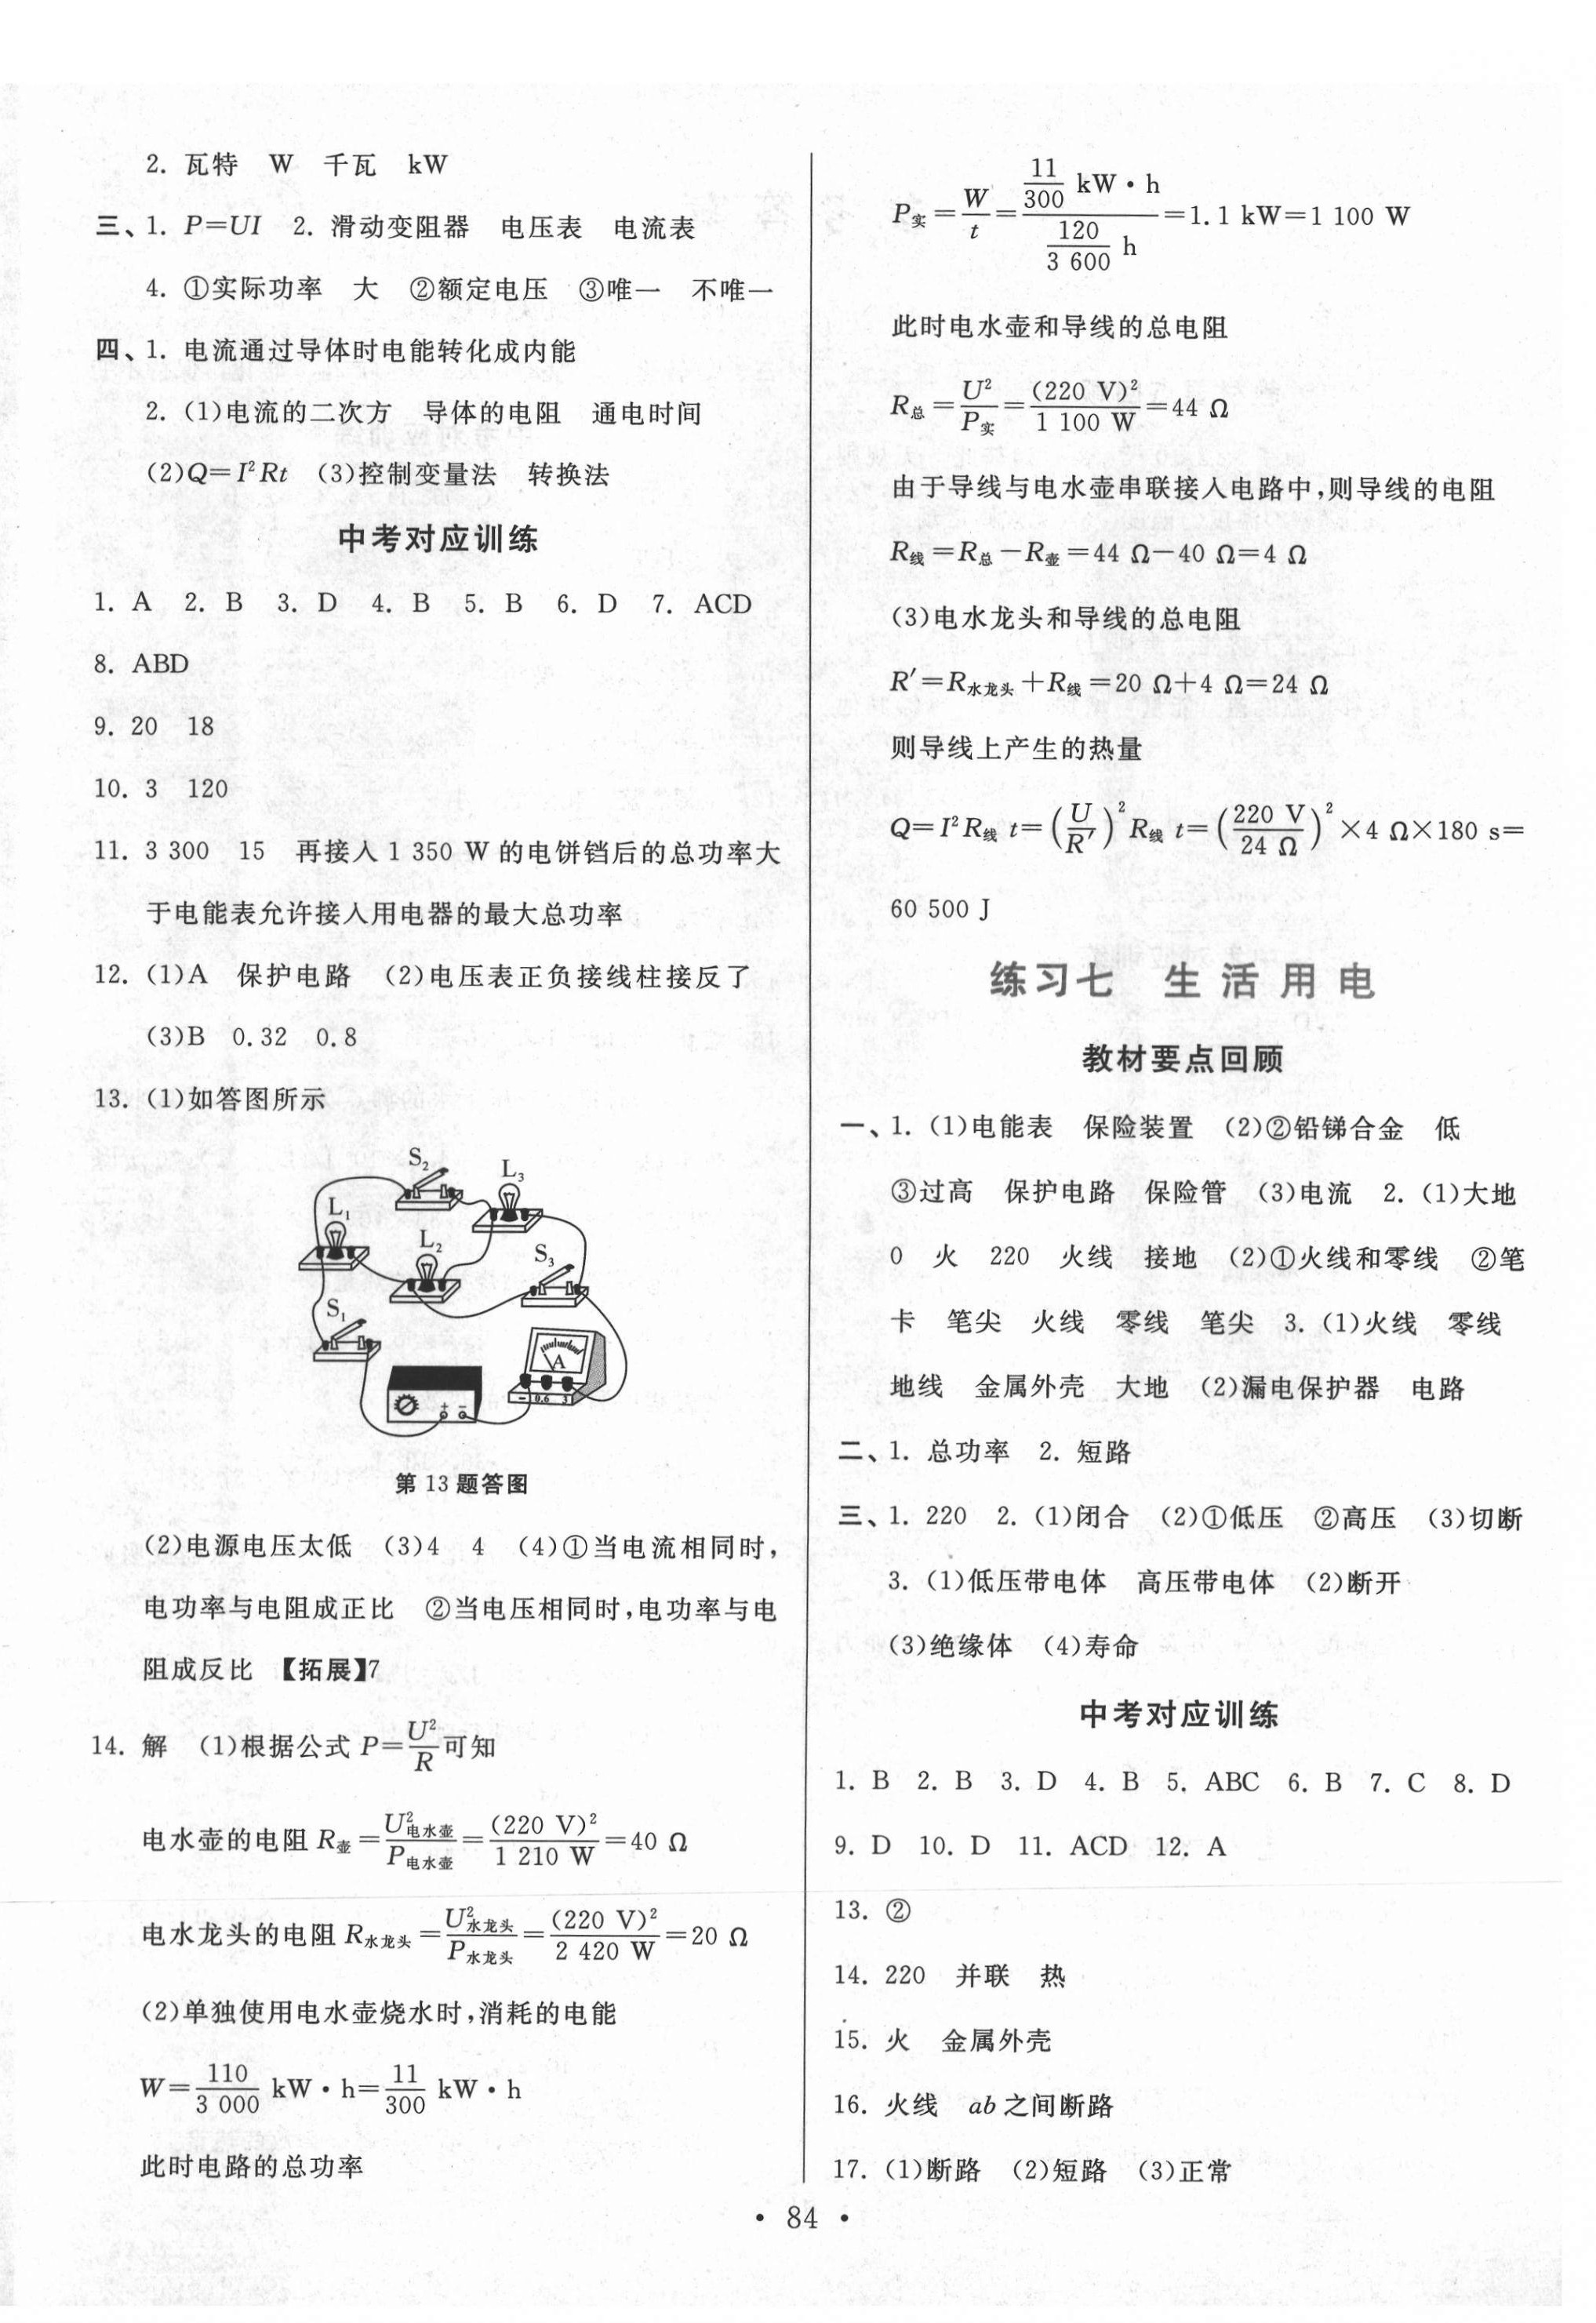 2. 瓦特 W 千瓦 kW
三、1. P=UI 2. 滑动变阻器 电压表 电流表
4. ①实际功率 大 ②额定电压 ③唯一 不唯一
四、1. 电流通过导体时电能转化成内能
2. (1)电流的二次方 导体的电阻 通电时间
(2)Q=I²Rt (3)控制变量法 转换法
中考对应训练
1. A 2. B 3. D 4. B 5. B 6. D 7. ACD
8. ABD
9. 20 18
10. 3 120
11. 3 300 15 再接入 1 350 W 的电饼铛后的总功率大
于电能表允许接入用电器的最大总功率
12. (1)A 保护电路 (2)电压表正负接线柱接反了
(3)B 0.32 0.8
13. (1)如答图所示
S₂
L₃
L₁
L₂
S₃
S₁
A
- 0.6 3
+ -
第 13 题答图
(2)电源电压太低 (3)4 4 (4)①当电流相同时,
电功率与电阻成正比 ②当电压相同时,电功率与电
阻成反比 【拓展】7
14. 解 (1)根据公式 P=U²/R可知
电水壶的电阻 R壶=U²电水壶/P电水壶=(220 V)²/1 210 W=40 Ω
电水龙头的电阻 R水龙头=U²水龙头/P水龙头=(220 V)²/2 420 W=20 Ω
(2)单独使用电水壶烧水时,消耗的电能
W=110/3 000 kW·h=11/300 kW·h
此时电路的总功率
P实=W/t=(11/300 kW·h)/(120/3 600 h)=1.1 kW=1 100 W
此时电水壶和导线的总电阻
R总=U²/P实=(220 V)²/1 100 W=44 Ω
由于导线与电水壶串联接入电路中,则导线的电阻
R线=R总-R壶=44 Ω-40 Ω=4 Ω
(3)电水龙头和导线的总电阻
R′=R水龙头+R线=20 Ω+4 Ω=24 Ω
则导线上产生的热量
Q=I²R线 t=(U/R′)²R线 t=(220 V/24 Ω)²×4 Ω×180 s=
60 500 J
练习七 生活用电
教材要点回顾
一、1. (1)电能表 保险装置 (2)②铅锑合金 低
③过高 保护电路 保险管 (3)电流 2. (1)大地
0 火 220 火线 接地 (2)①火线和零线 ②笔
卡 笔尖 火线 零线 笔尖 3. (1)火线 零线
地线 金属外壳 大地 (2)漏电保护器 电路
二、1. 总功率 2. 短路
三、1. 220 2. (1)闭合 (2)①低压 ②高压 (3)切断
3. (1)低压带电体 高压带电体 (2)断开
(3)绝缘体 (4)寿命
中考对应训练
1. B 2. B 3. D 4. B 5. ABC 6. B 7. C 8. D
9. D 10. D 11. ACD 12. A
13. ②
14. 220 并联 热
15. 火 金属外壳
16. 火线 ab 之间断路
17. (1)断路 (2)短路 (3)正常
• 84 •